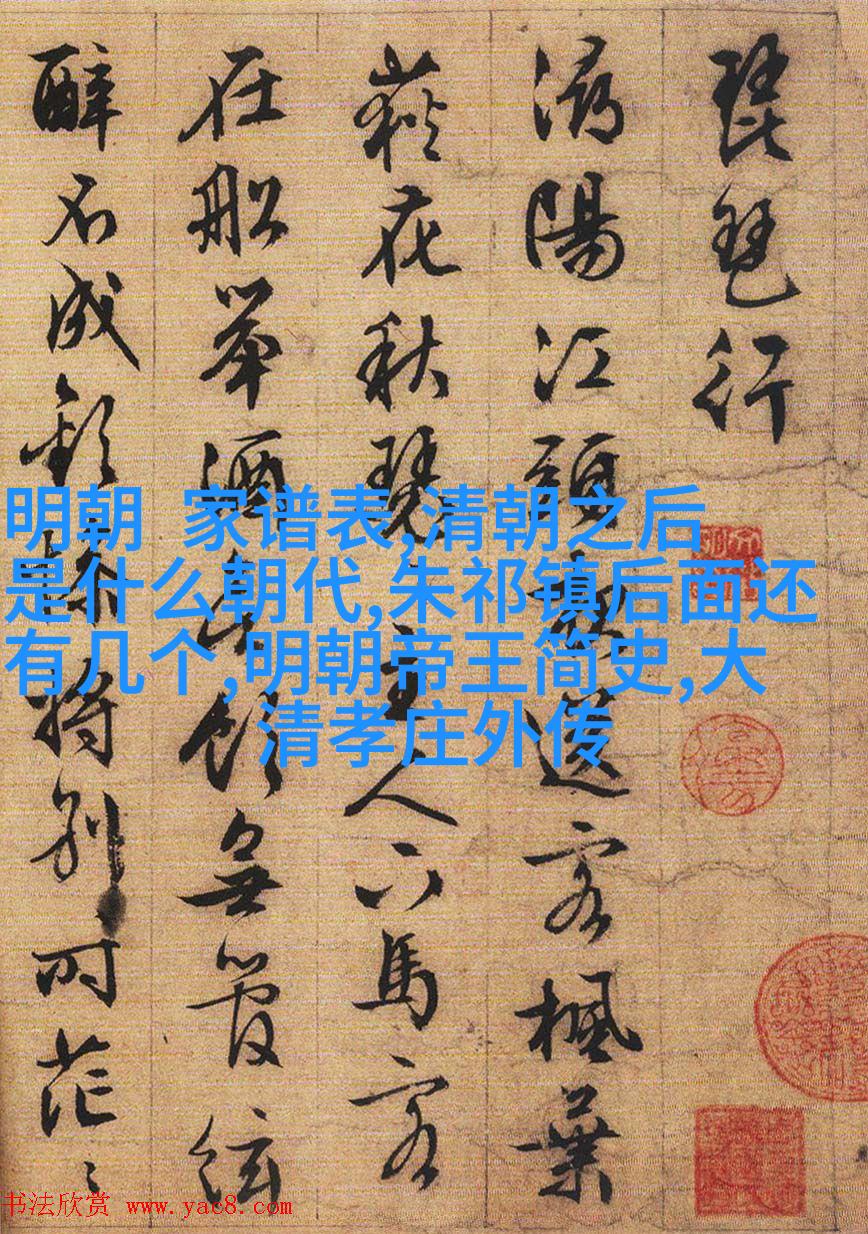 琵琶行
潯陽江頭夜送客楓葉
荻花秋瑟〻主人下馬客
在船舉酒欲飲無管絃
醉不成歡慘將別〻时茫〻
明朝 家谱表,清朝之后
是什么朝代,朱祁镇后面还
有几个,明朝帝王简史,大
清孝庄外传
书法欣赏 www.yac8.com